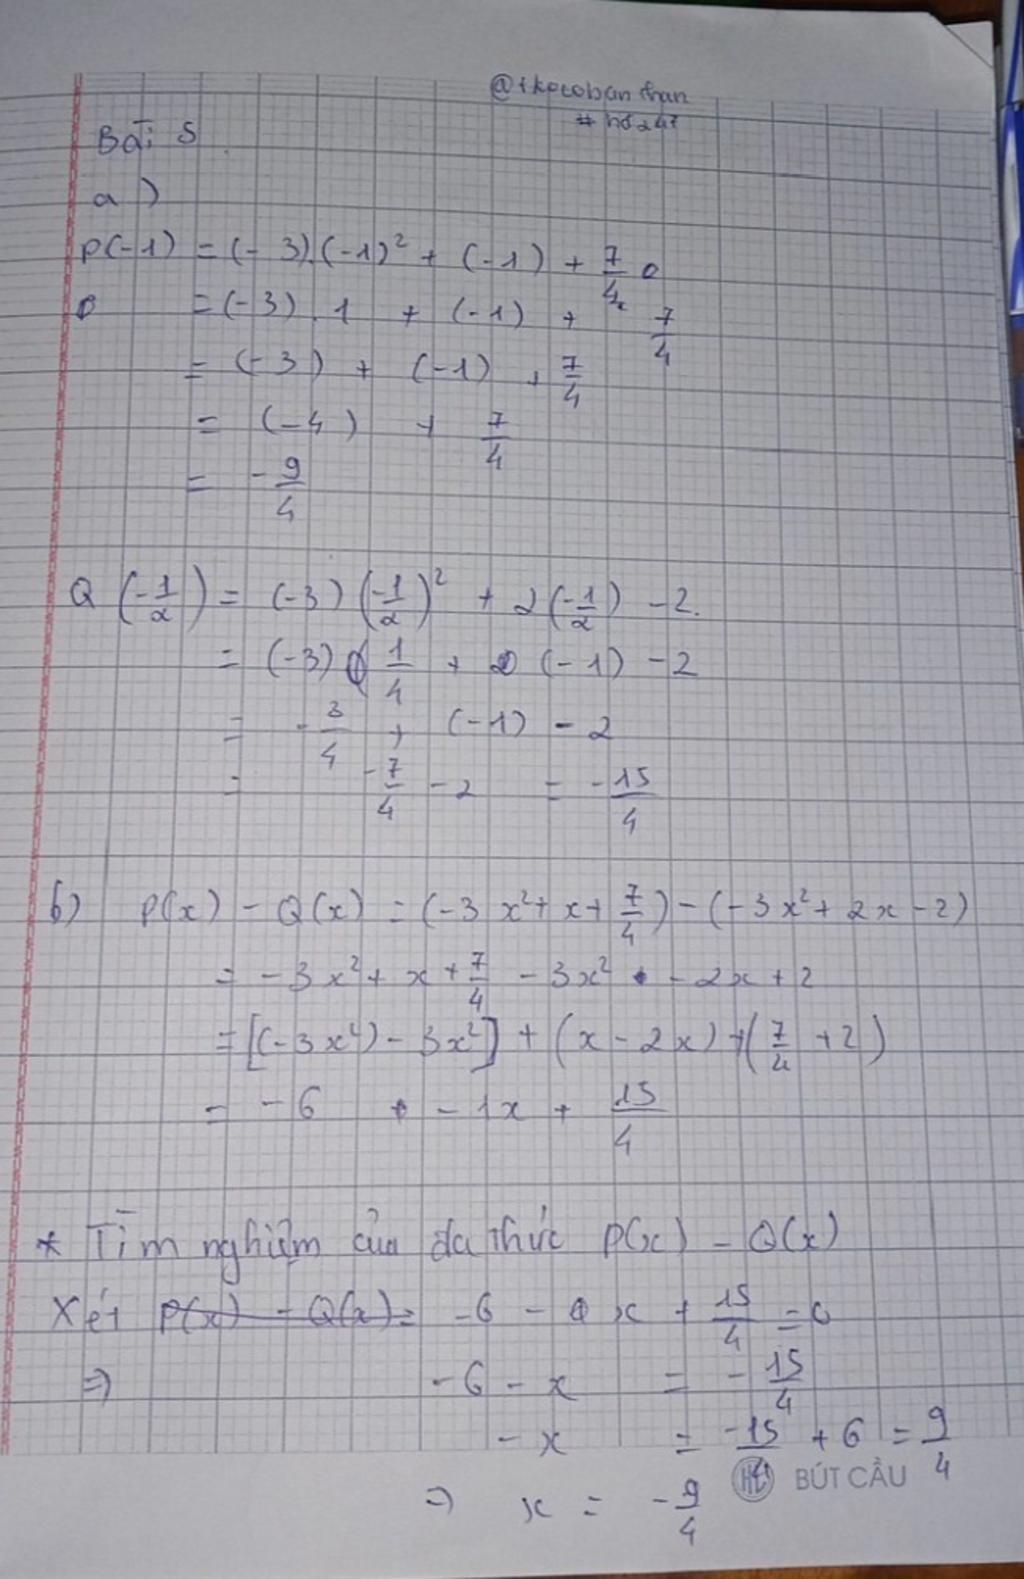 Bài 5
a)
P(-1) = (-3).(-1)² + (-1) + 7/4
= (-3).1 + (-1) + 7/4
= (-3) + (-1) + 7/4
= (-4) + 7/4
= -9/4
Q(-1/2) = (-3)(-1/2)² + 2(-1/2) - 2.
= (-3) 1/4 + (-1) - 2
= -3/4 + (-1) - 2
= -7/4 - 2 = -15/4
b) P(x) - Q(x) = (-3x² + x + 7/4) - (-3x² + 2x - 2)
= -3x² + x + 7/4 - 3x² - 2x + 2
= [(-3x²) - 3x²] + (x - 2x) + (7/4 + 2)
= -6 - 1x + 15/4
* Tìm nghiệm của đa thức P(x) - Q(x)
Xét P(x) - Q(x) = -6 - x + 15/4 = 0
=> -6 - x = -15/4
-x = -15/4 + 6 = 9/4
BÚT CẦU
=> x = -9/4